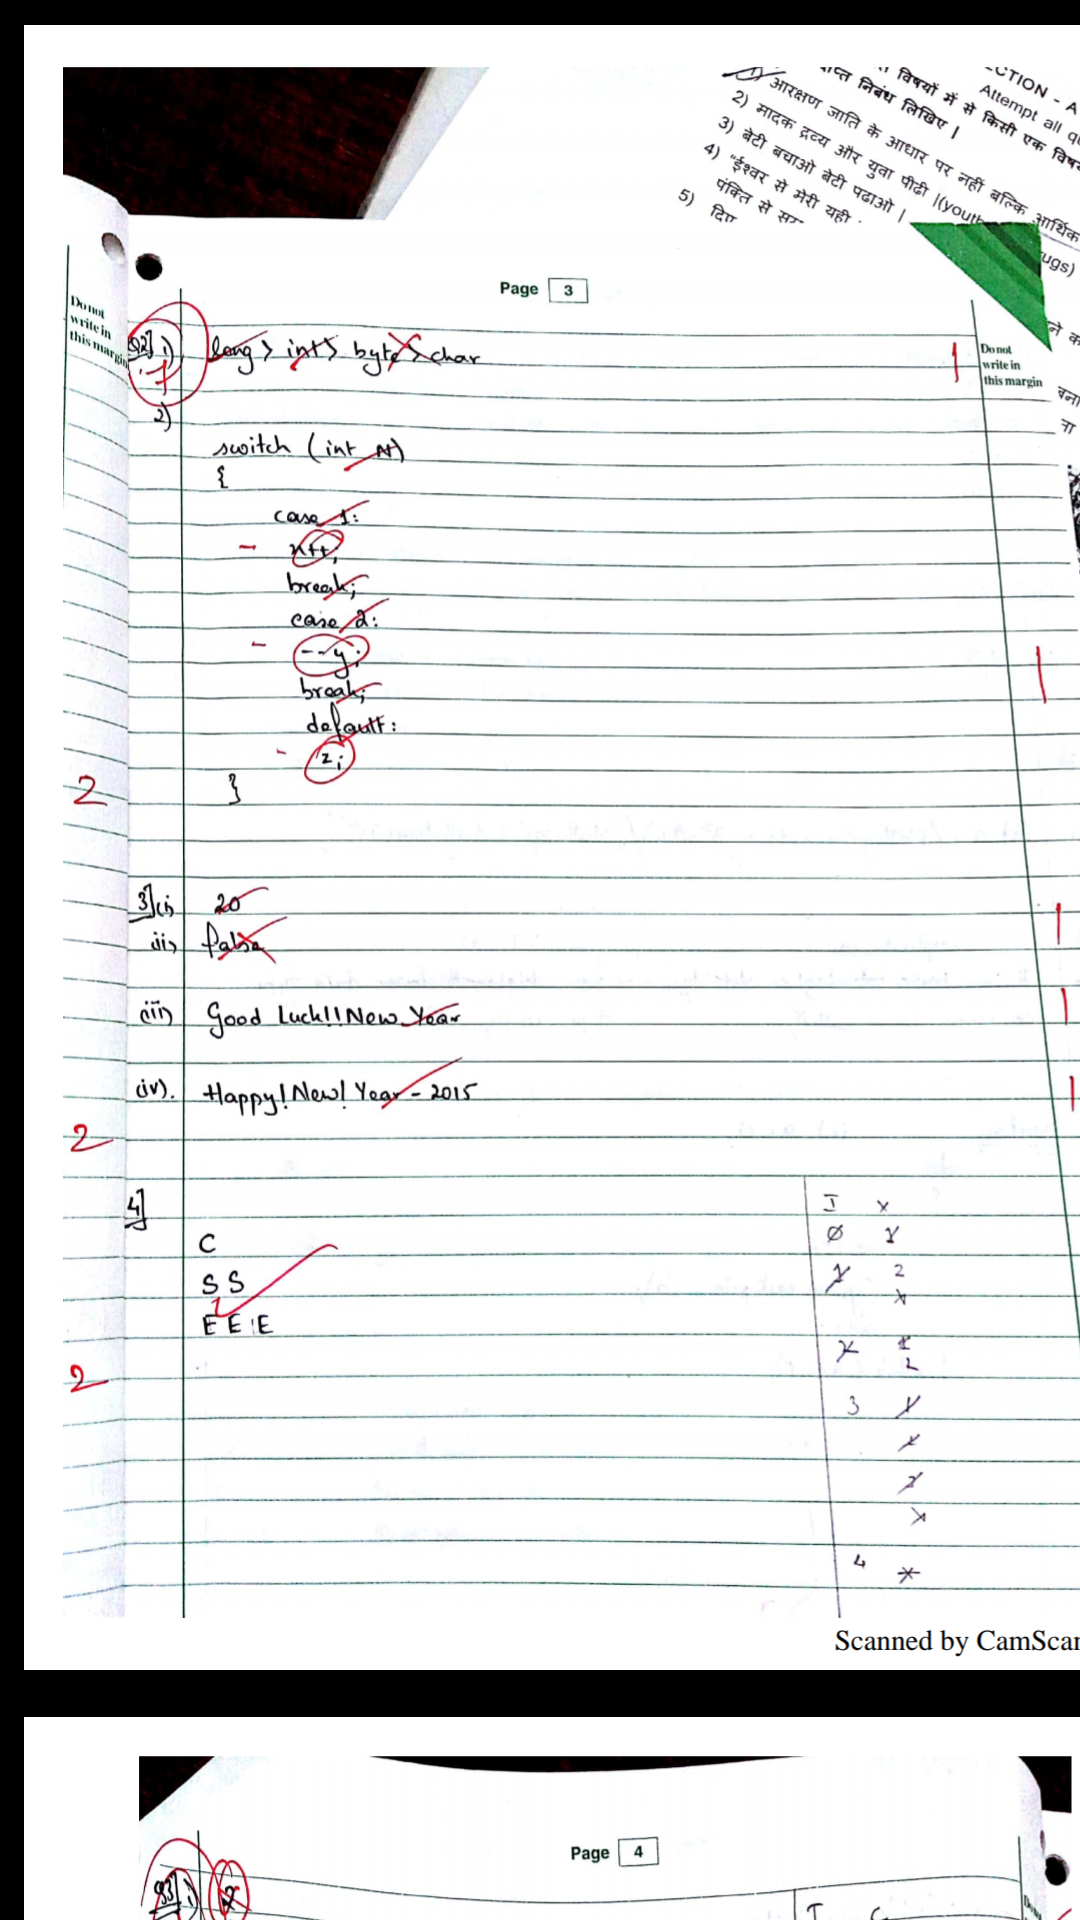 CTION - A
Attempt all qu
विषयों में से किसी एक विषय
निबंध लिखिए |
1) आरक्षण जाति के आधार पर नहीं बल्कि आर्थिक
2) मादक द्रव्य और युवा पीढी |(youth
ugs)
3) बेटी बचाओ बेटी पढाओ |
4) "ईश्वर से मेरी यही
पंक्ति से
5)
Page 3
Do not
write in
this margin
Do not
write in
this margin
Q2] i) long > int > byte > char
1
2)
switch (int N)
{
case 1:
x++;
break;
case 2:
--y;
break;
1
default:
z;
2
}
3](i) 20
1
(ii) false
(iii) Good Luck!! New Year
1
(iv). Happy! New! Year - 2015
1
2
4]
I x
C
S S
2
E E E
2
3
4
Scanned by CamScan
Page 4
Q3] i)
I